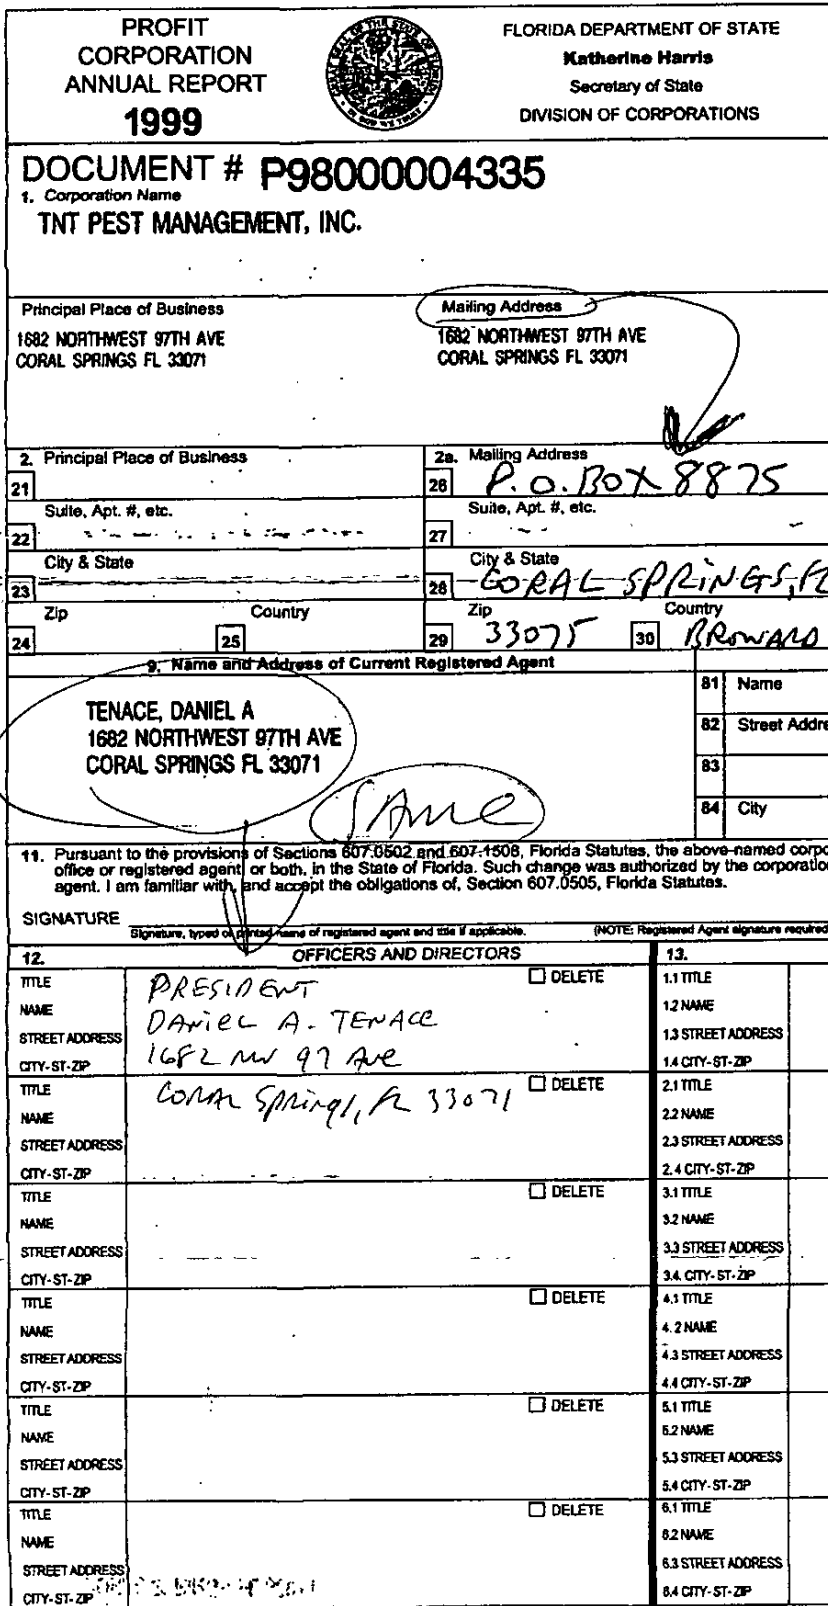 PROFIT
CORPORATION
ANNUAL REPORT
1999
FLORIDA DEPARTMENT OF STATE
Katherine Harris
Secretary of State
DIVISION OF CORPORATIONS
DOCUMENT # P98000004335
1. Corporation Name
TNT PEST MANAGEMENT, INC.
Principal Place of Business
1682 NORTHWEST 97TH AVE
CORAL SPRINGS FL 33071
Mailing Address
1682 NORTHWEST 97TH AVE
CORAL SPRINGS FL 33071
2. Principal Place of Business
21
Suite, Apt. #, etc.
22
City & State
23
Zip
24
Country
25
2a. Mailing Address
26 P.O. BOX 8875
Suite, Apt. #, etc.
27
City & State
28 CORAL SPRINGS, FL
Zip
29 33075
Country
30 BROWARD
9. Name and Address of Current Registered Agent
TENACE, DANIEL A
1682 NORTHWEST 97TH AVE
CORAL SPRINGS FL 33071
SAME
81 Name
82 Street Addre
83
84 City
11. Pursuant to the provisions of Sections 607.0502 and 607.1508, Florida Statutes, the above-named corpo
office or registered agent, or both, in the State of Florida. Such change was authorized by the corporatio
agent. I am familiar with, and accept the obligations of, Section 607.0505, Florida Statutes.
SIGNATURE
Signature, typed or printed name of registered agent and title if applicable. (NOTE: Registered Agent signature required
12. OFFICERS AND DIRECTORS 13.
TITLE PRESIDENT DELETE 1.1 TITLE
NAME DANIEL A. TENACE 1.2 NAME
STREET ADDRESS 1682 NW 97 Ave 1.3 STREET ADDRESS
CITY-ST-ZIP 1.4 CITY-ST-ZIP
TITLE CORAL Springs, FL 33071 DELETE 2.1 TITLE
NAME 2.2 NAME
STREET ADDRESS 2.3 STREET ADDRESS
CITY-ST-ZIP 2.4 CITY-ST-ZIP
TITLE DELETE 3.1 TITLE
NAME 3.2 NAME
STREET ADDRESS 3.3 STREET ADDRESS
CITY-ST-ZIP 3.4. CITY-ST-ZIP
TITLE DELETE 4.1 TITLE
NAME 4.2 NAME
STREET ADDRESS 4.3 STREET ADDRESS
CITY-ST-ZIP 4.4 CITY-ST-ZIP
TITLE DELETE 5.1 TITLE
NAME 5.2 NAME
STREET ADDRESS 5.3 STREET ADDRESS
CITY-ST-ZIP 5.4 CITY-ST-ZIP
TITLE DELETE 6.1 TITLE
NAME 6.2 NAME
STREET ADDRESS 6.3 STREET ADDRESS
CITY-ST-ZIP 6.4 CITY-ST-ZIP